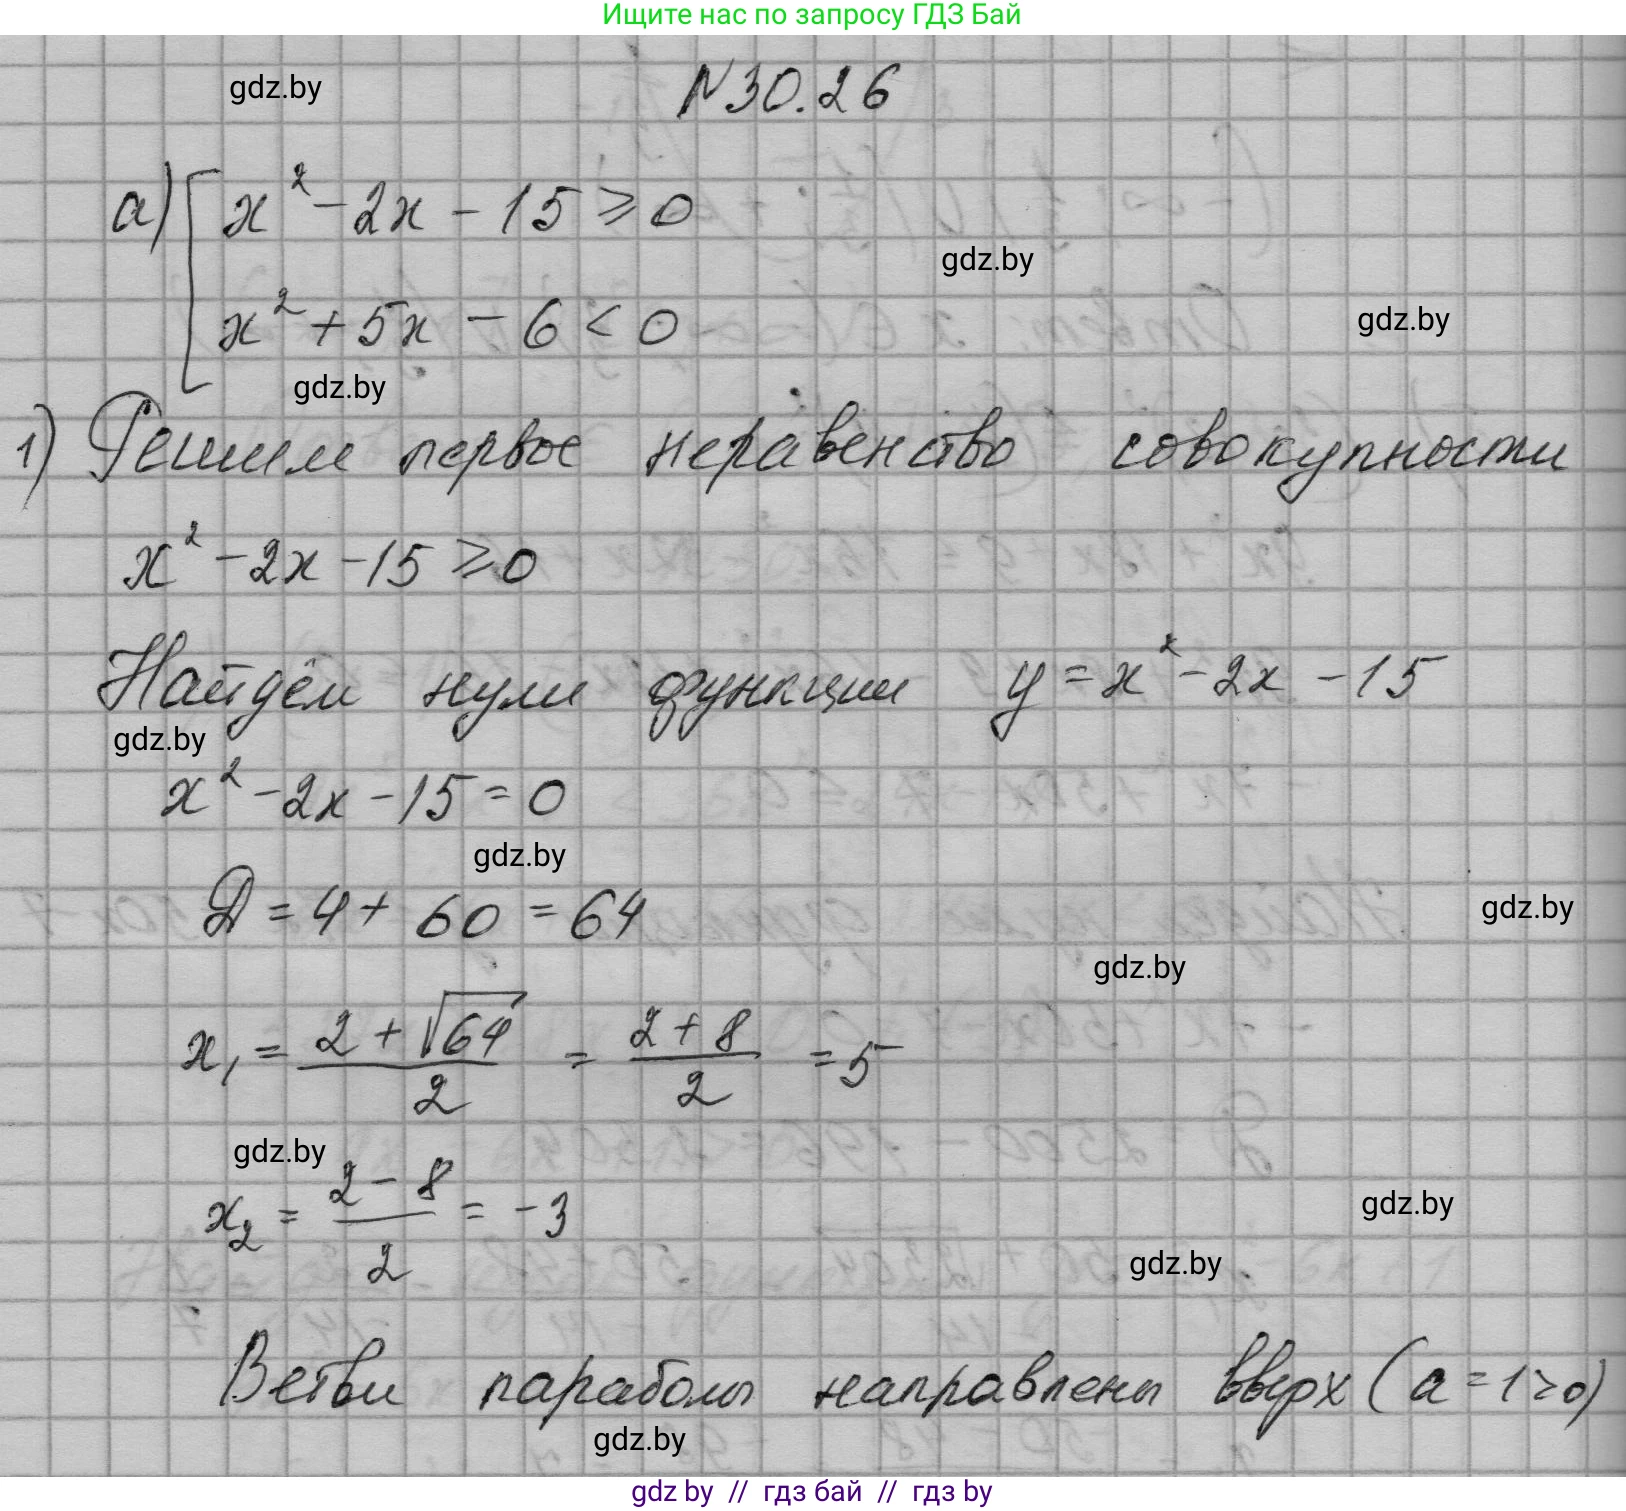 Ищите нас по запросу ГДЗ Бай
gdz.by
N30.26
а) [ x² - 2x - 15 ≥ 0
gdz.by
x² + 5x - 6 < 0
gdz.by
gdz.by
1) Решим первое неравенство совокупности
x² - 2x - 15 ≥ 0
Найдём нули функции y = x² - 2x - 15
gdz.by
x² - 2x - 15 = 0
gdz.by
Д = 4 + 60 = 64
gdz.by
gdz.by
x₁ = (2 + √64)/2 = (2 + 8)/2 = 5
gdz.by
x₂ = (2 - 8)/2 = -3
gdz.by
gdz.by
Ветви параболы направлены вверх (a = 1 > 0)
gdz.by
gdz by // гдз бай // гдз by